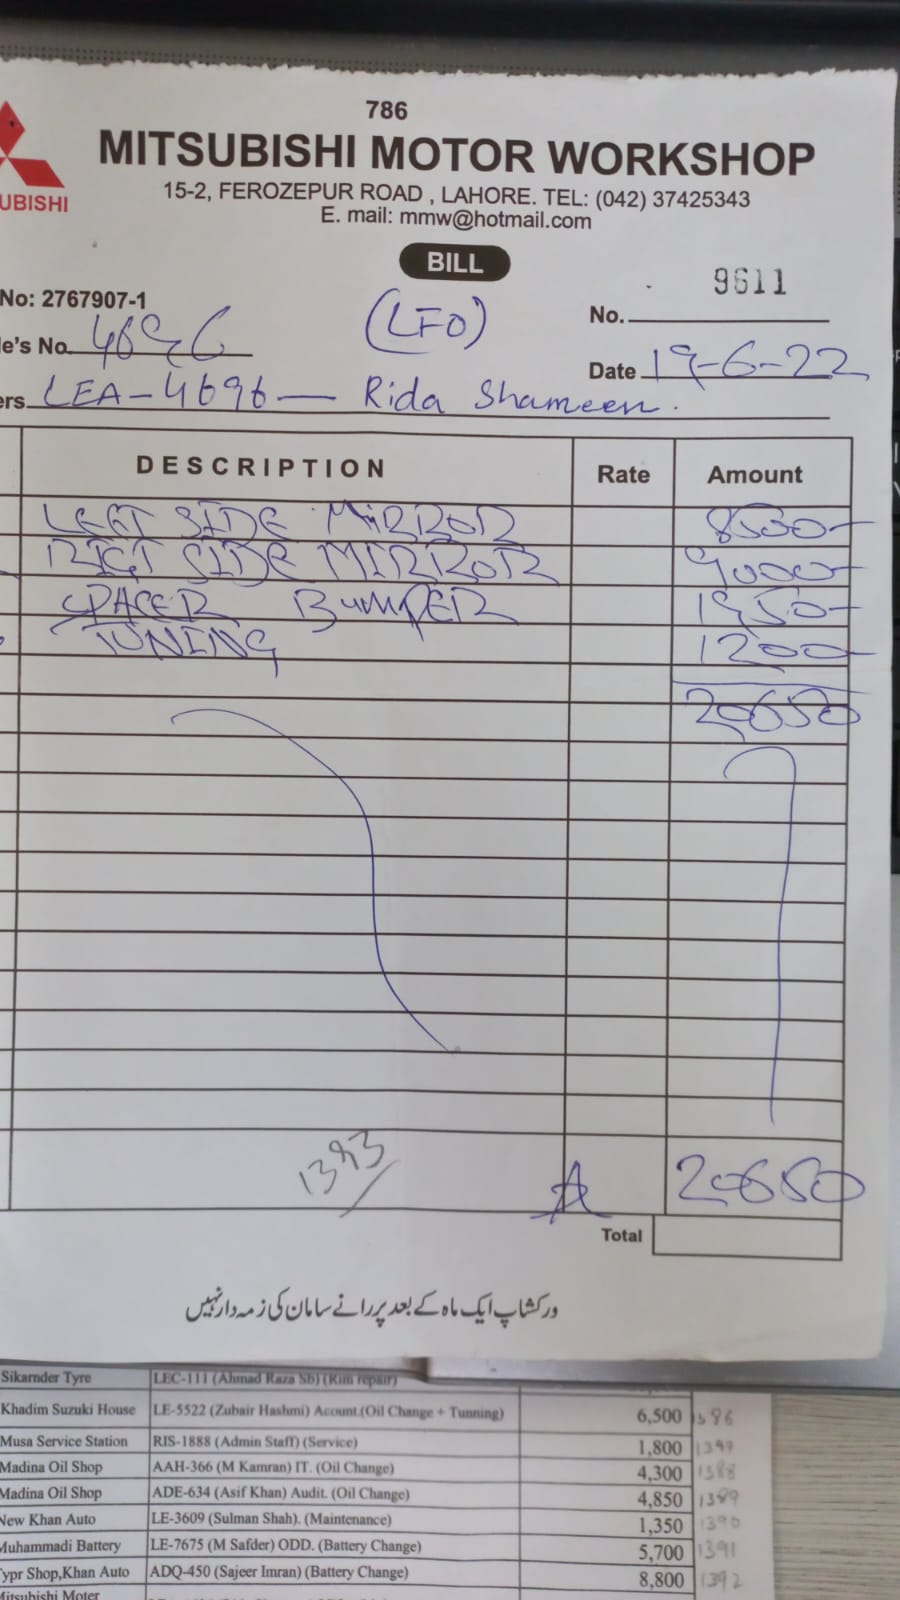 786
MITSUBISHI MOTOR WORKSHOP
UBISHI
15-2, FEROZEPUR ROAD , LAHORE. TEL: (042) 37425343
E. mail: mmw@hotmail.com
BILL
No: 2767907-1
(LFO)
No. 9611
le's No. 4696
Date 19-6-22
ers LEA-4696 — Rida Shameen.
DESCRIPTION Rate Amount
LEFT SIDE MIRROR 8500-
RIGT SIDE MIRROR 9000-
SPACER BUMPER 1950-
TUNING 1200-
20650
1393
20650
Total
ورکشاپ ایک ماہ کے بعد پررانے سامان کی زمہ دار نہیں
Sikarnder Tyre LEC-111 (Ahmad Raza Sb) (Rim repair)
Khadim Suzuki House LE-5522 (Zubair Hashmi) Acount.(Oil Change + Tunning) 6,500 1386
Musa Service Station RIS-1888 (Admin Staff) (Service) 1,800
Madina Oil Shop AAH-366 (M Kamran) IT. (Oil Change) 4,300 1388
Madina Oil Shop ADE-634 (Asif Khan) Audit. (Oil Change) 4,850 1389
New Khan Auto LE-3609 (Sulman Shah). (Maintenance) 1,350 1390
Muhammadi Battery LE-7675 (M Safder) ODD. (Battery Change) 5,700 1391
Typr Shop,Khan Auto ADQ-450 (Sajeer Imran) (Battery Change) 8,800 1392
Mitsubishi Moter